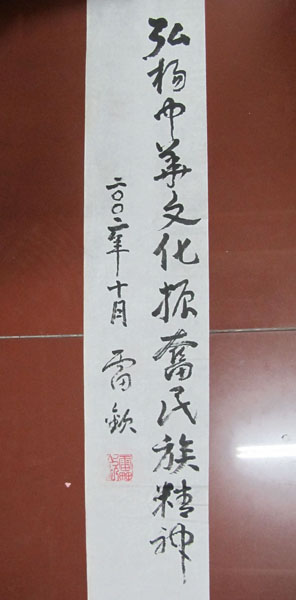 弘扬中华文化振奋民族精神
二〇〇二年十月
雷钦